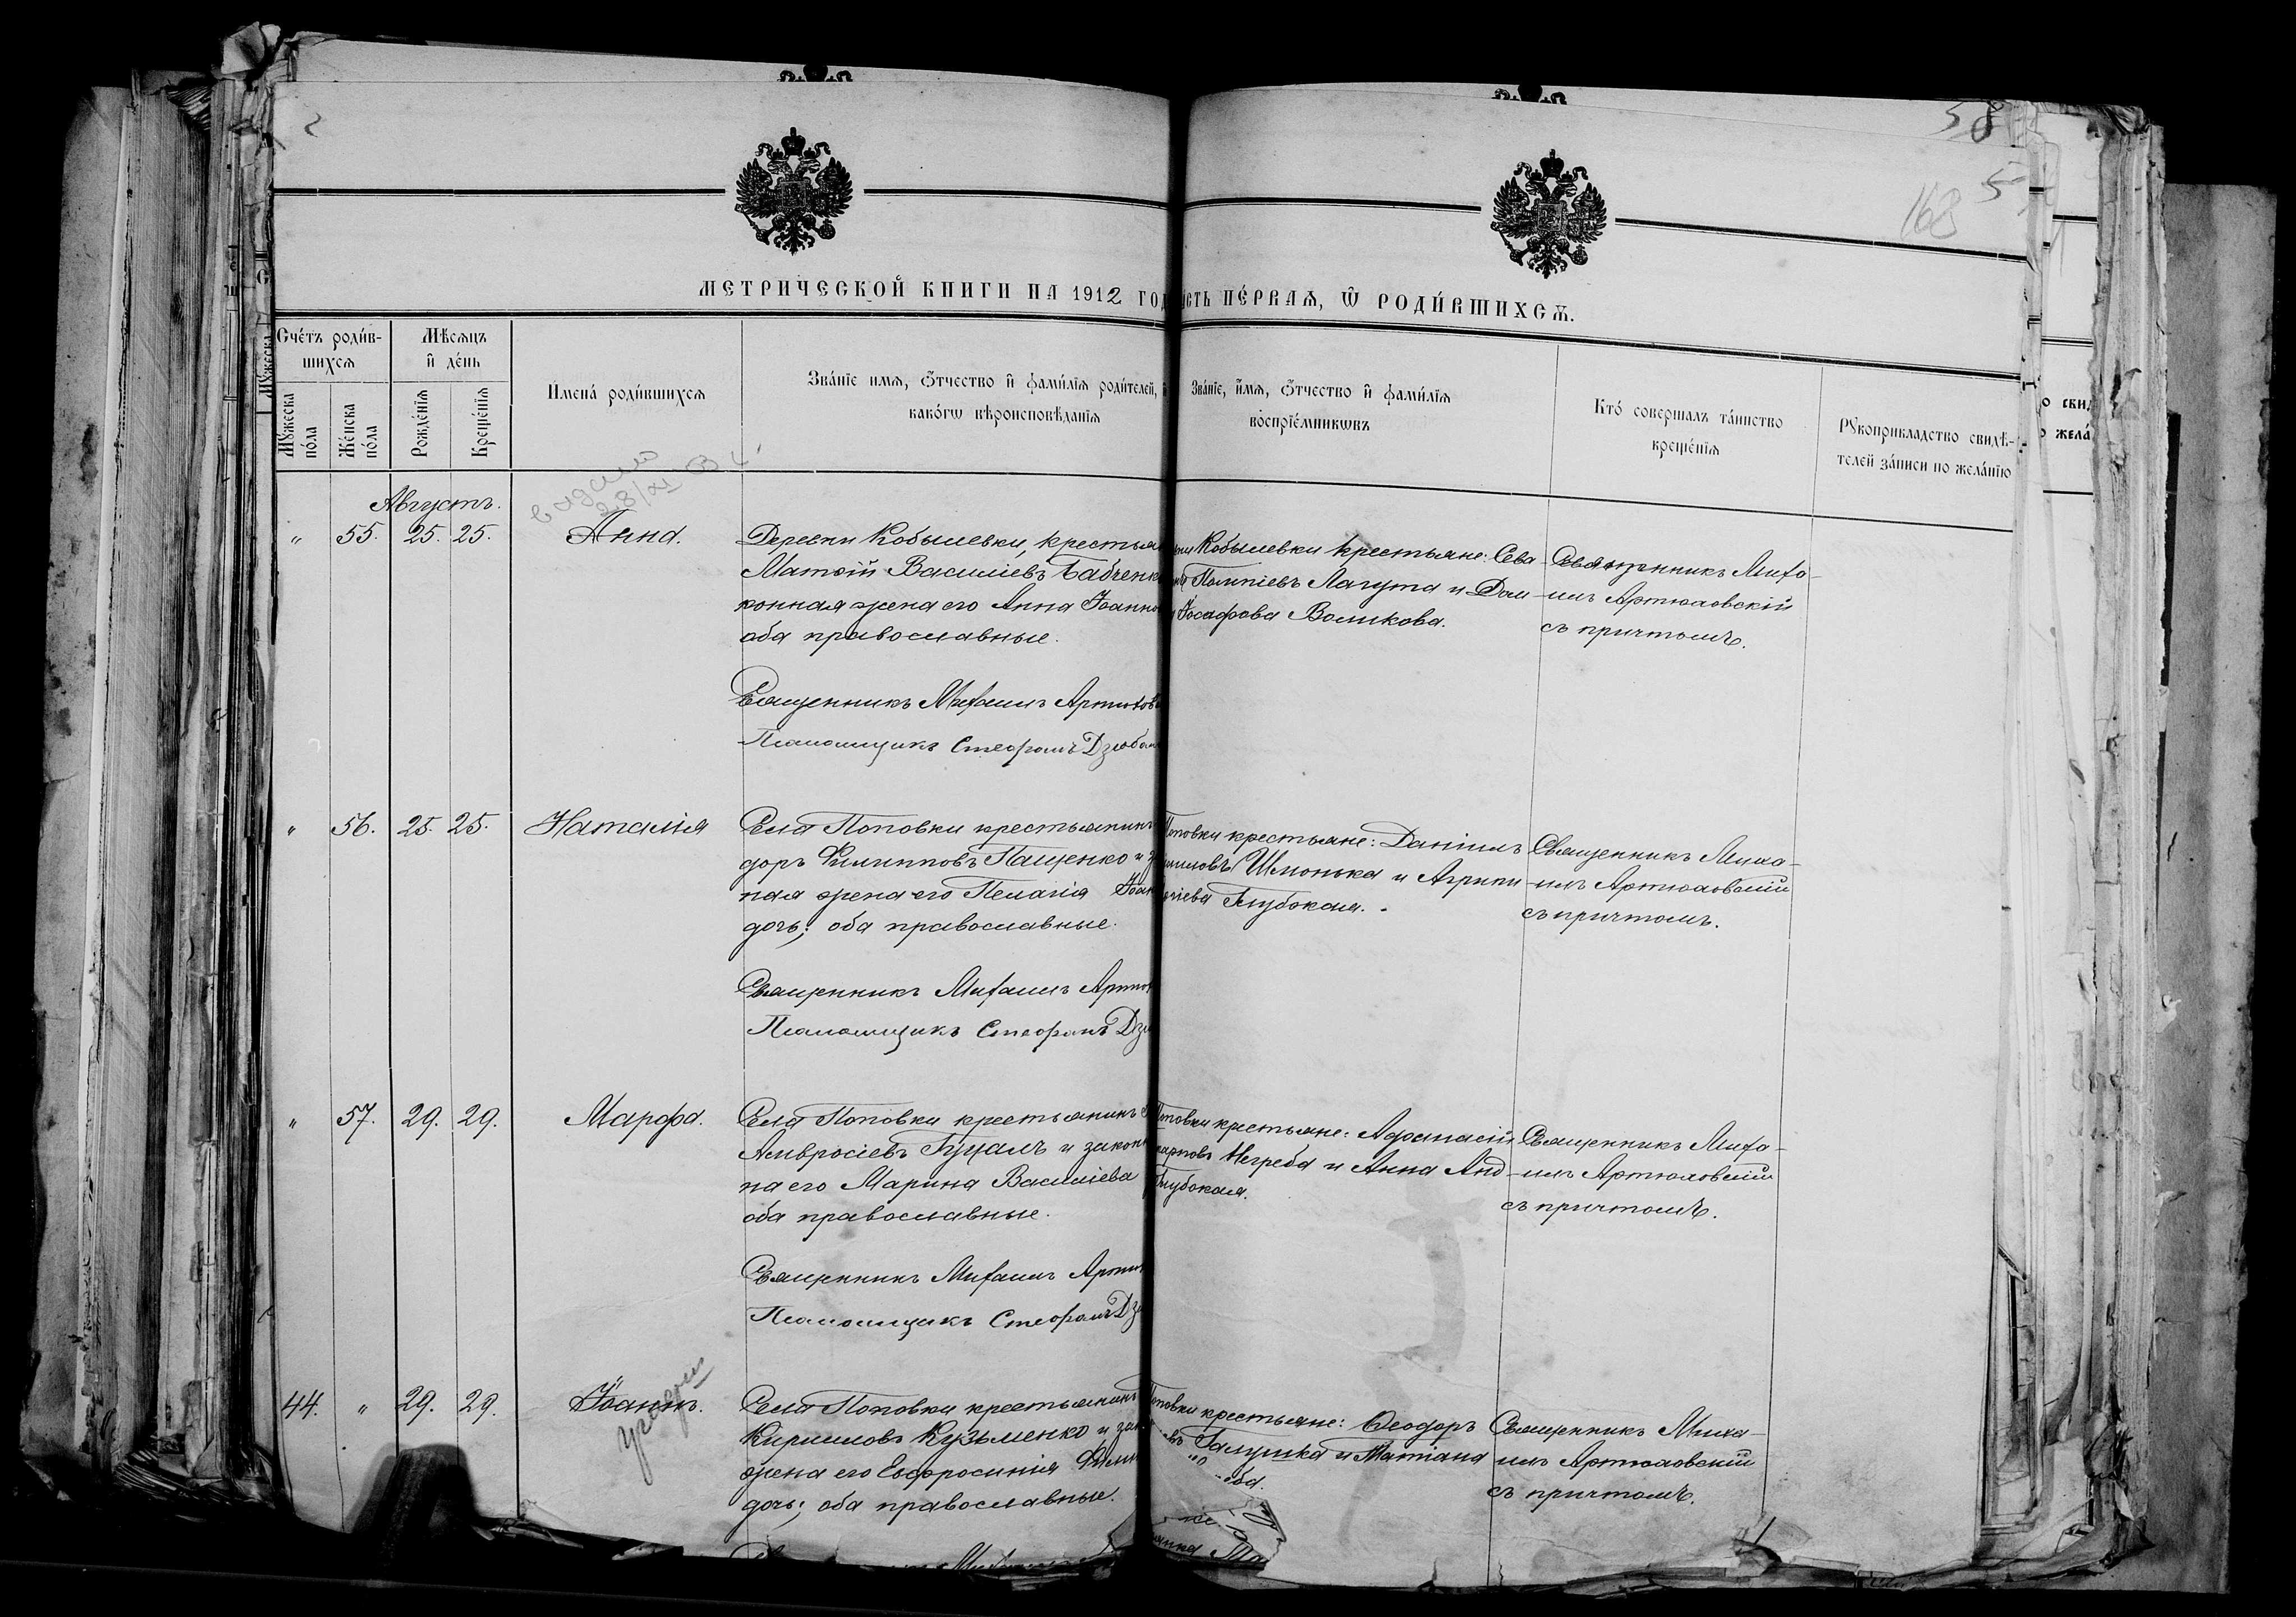 58
5
168
МЕТРИЧЕСКОЙ КНИГИ НА 1912 ГОД
СТЬ ПЕ́РВАѦ, Ѡ РОДИ́ВШИХСѦ.
Сче́тъ роди́в-
шихсѧ
Мѣсѧцъ
и де́нь
Мꙋ́жеска
по́ла
Же́нска
по́ла
Рожде́нїѧ
Креще́нїѧ
Имена́ роди́вшихсѧ
Зва́нїе имѧ, ѻ҆́тчество и фами́лїѧ роди́телей,
како́гѡ вѣроисповѣ́данїѧ
Зва́нїе, и́мѧ, ѻ҆́тчество и фами́лїѧ
воспрїе́мникѡвъ
Кто́ совершалъ та́инство
креще́нїѧ
Рꙋкоприкладство свидѣ́-
телей за́писи по жела́нїю
Августъ.
28/XI
" 55. 25. 25. Анна.
Деревни Кобылевки, крестья
Матѳій Василіевъ Бабченк
конная жена его Анна Іоанно
оба православные.
Священникъ Михаилъ Артюхов
Псаломщикъ Стефанъ Дзюбан
Кобылевки крестьяне: Сева-
Помпіевъ Лагута и Дом-
Іосафова Воликова.
Священникъ Миха-
илъ Артюховскій
съ причтомъ.
" 56. 25. 25. Наталія
Села Поповки крестьянинъ
доръ Филипповъ Пащенко и з
ная жена его Пелагія Іоан
дочь; оба православные.
Священникъ Михаилъ Артюх
Псаломщикъ Стефанъ Дзю
Поповки крестьяне: Даніилъ
Шмонька и Агрипи-
Глубокая.
Священникъ Миха-
илъ Артюховскій
съ причтомъ.
" 57. 29. 29. Марфа.
Села Поповки крестьянинъ
Амвросіевъ Гуцалъ и закон
на его Марина Василіева
оба православные.
Священникъ Михаилъ Артюх
Псаломщикъ Стефанъ Дзю
Поповки крестьяне: Афанасій
Негреба и Анна Анд-
Глубокая.
Священникъ Миха-
илъ Артюховскій
съ причтомъ.
44. " 29. 29. Іоаннъ.
Села Поповки крестьянинъ
Кирилловъ Кузьменко и зак
жена его Евфросинія Филип
дочь; оба православные.
Поповки крестьяне: Ѳеодоръ
Галушка и Татіана
Священникъ Миха-
илъ Артюховскій
съ причтомъ.